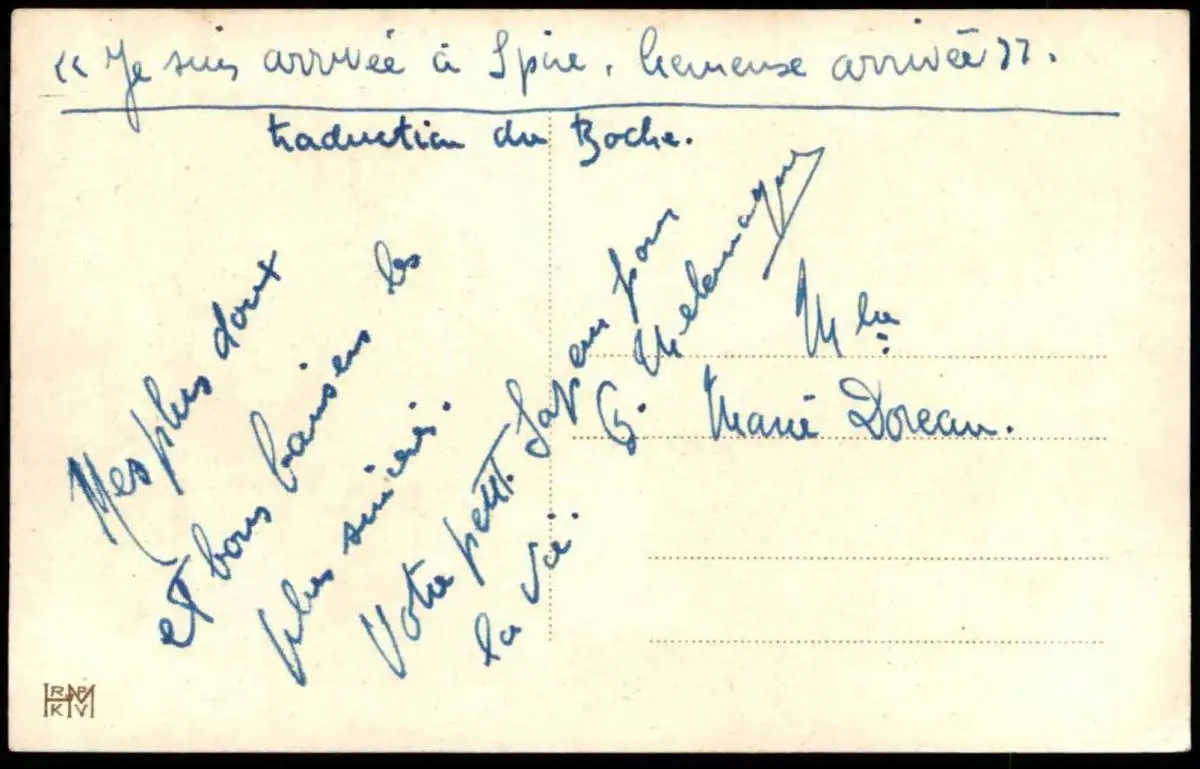 « Je suis arrivée à Spire, heureuse arrivée ».
traduction du Boche.
Mes plus doux
et bons baisers les
plus sincères.
Votre petit
pour
la vie.
G.
Mlle
Marie Doreau.